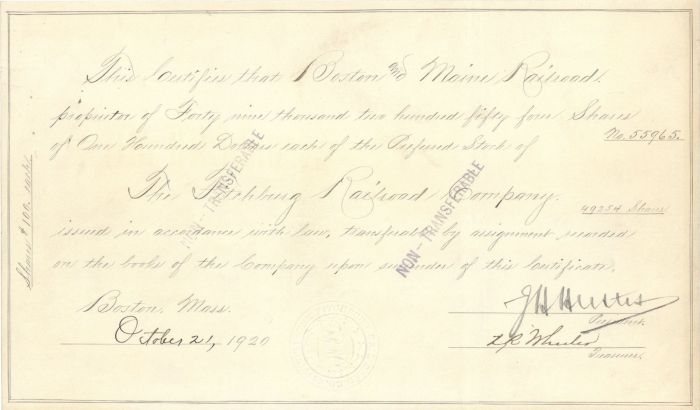 This Certifies that Boston and Maine Railroad.
proprietor of Forty nine thousand two hundred fifty four Shares
No. 55965.
of One Hundred Dollars each of the Preferred Stock of
The Fitchburg Railroad Company.
49254 Shares
issued in accordance with law, transferable by assignment recorded
on the books of the Company upon surrender of this Certificate.
Shares $100. each.
NON-TRANSFERABLE
NON-TRANSFERABLE
Boston, Mass.
October 21, 1920
President.
Wheeler
Treasurer.